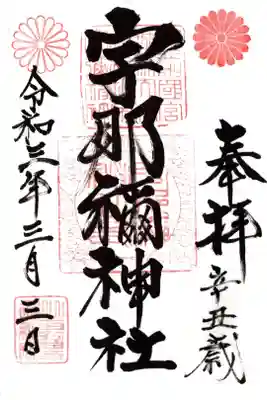 奉拝
辛丑歳
宇那禰神社
令和三年三月三日